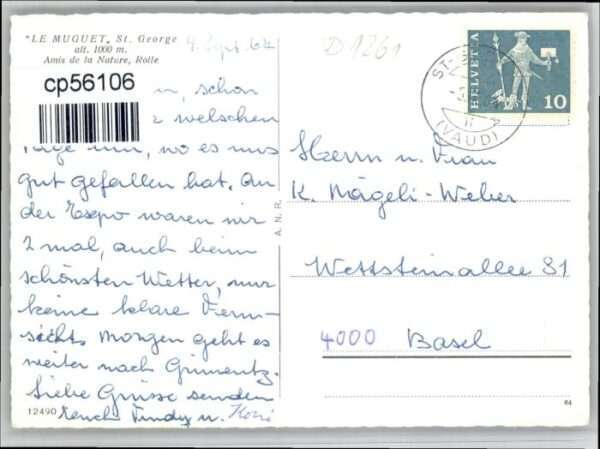 "LE MUGUET" St. George
alt. 1000 m.
Amis de la Nature, Rolle
4. Sept. 64
D 1261
cp56106
n, schön
welschen
wo es uns
gut gefallen hat. An
der Expo waren wir
2 mal, auch beim
schönsten Wetter, nur
keine klare Fern-
sicht. Morgen geht es
weiter nach Grimentz.
Liebe Grüsse senden
Euch u.
12490
A. N. R.
HELVETIA
10
ST-
(VAUD)
Herrn u. Frau
K. Nägeli-Weber
Wettsteinallee 81
4000 Basel
64